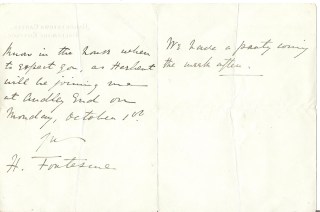 know in the house when
to expect you, as Herbert
will be joining me
at Audley End on
Monday, October 1st.
H. Fortescue
We have a party coming
the week after.